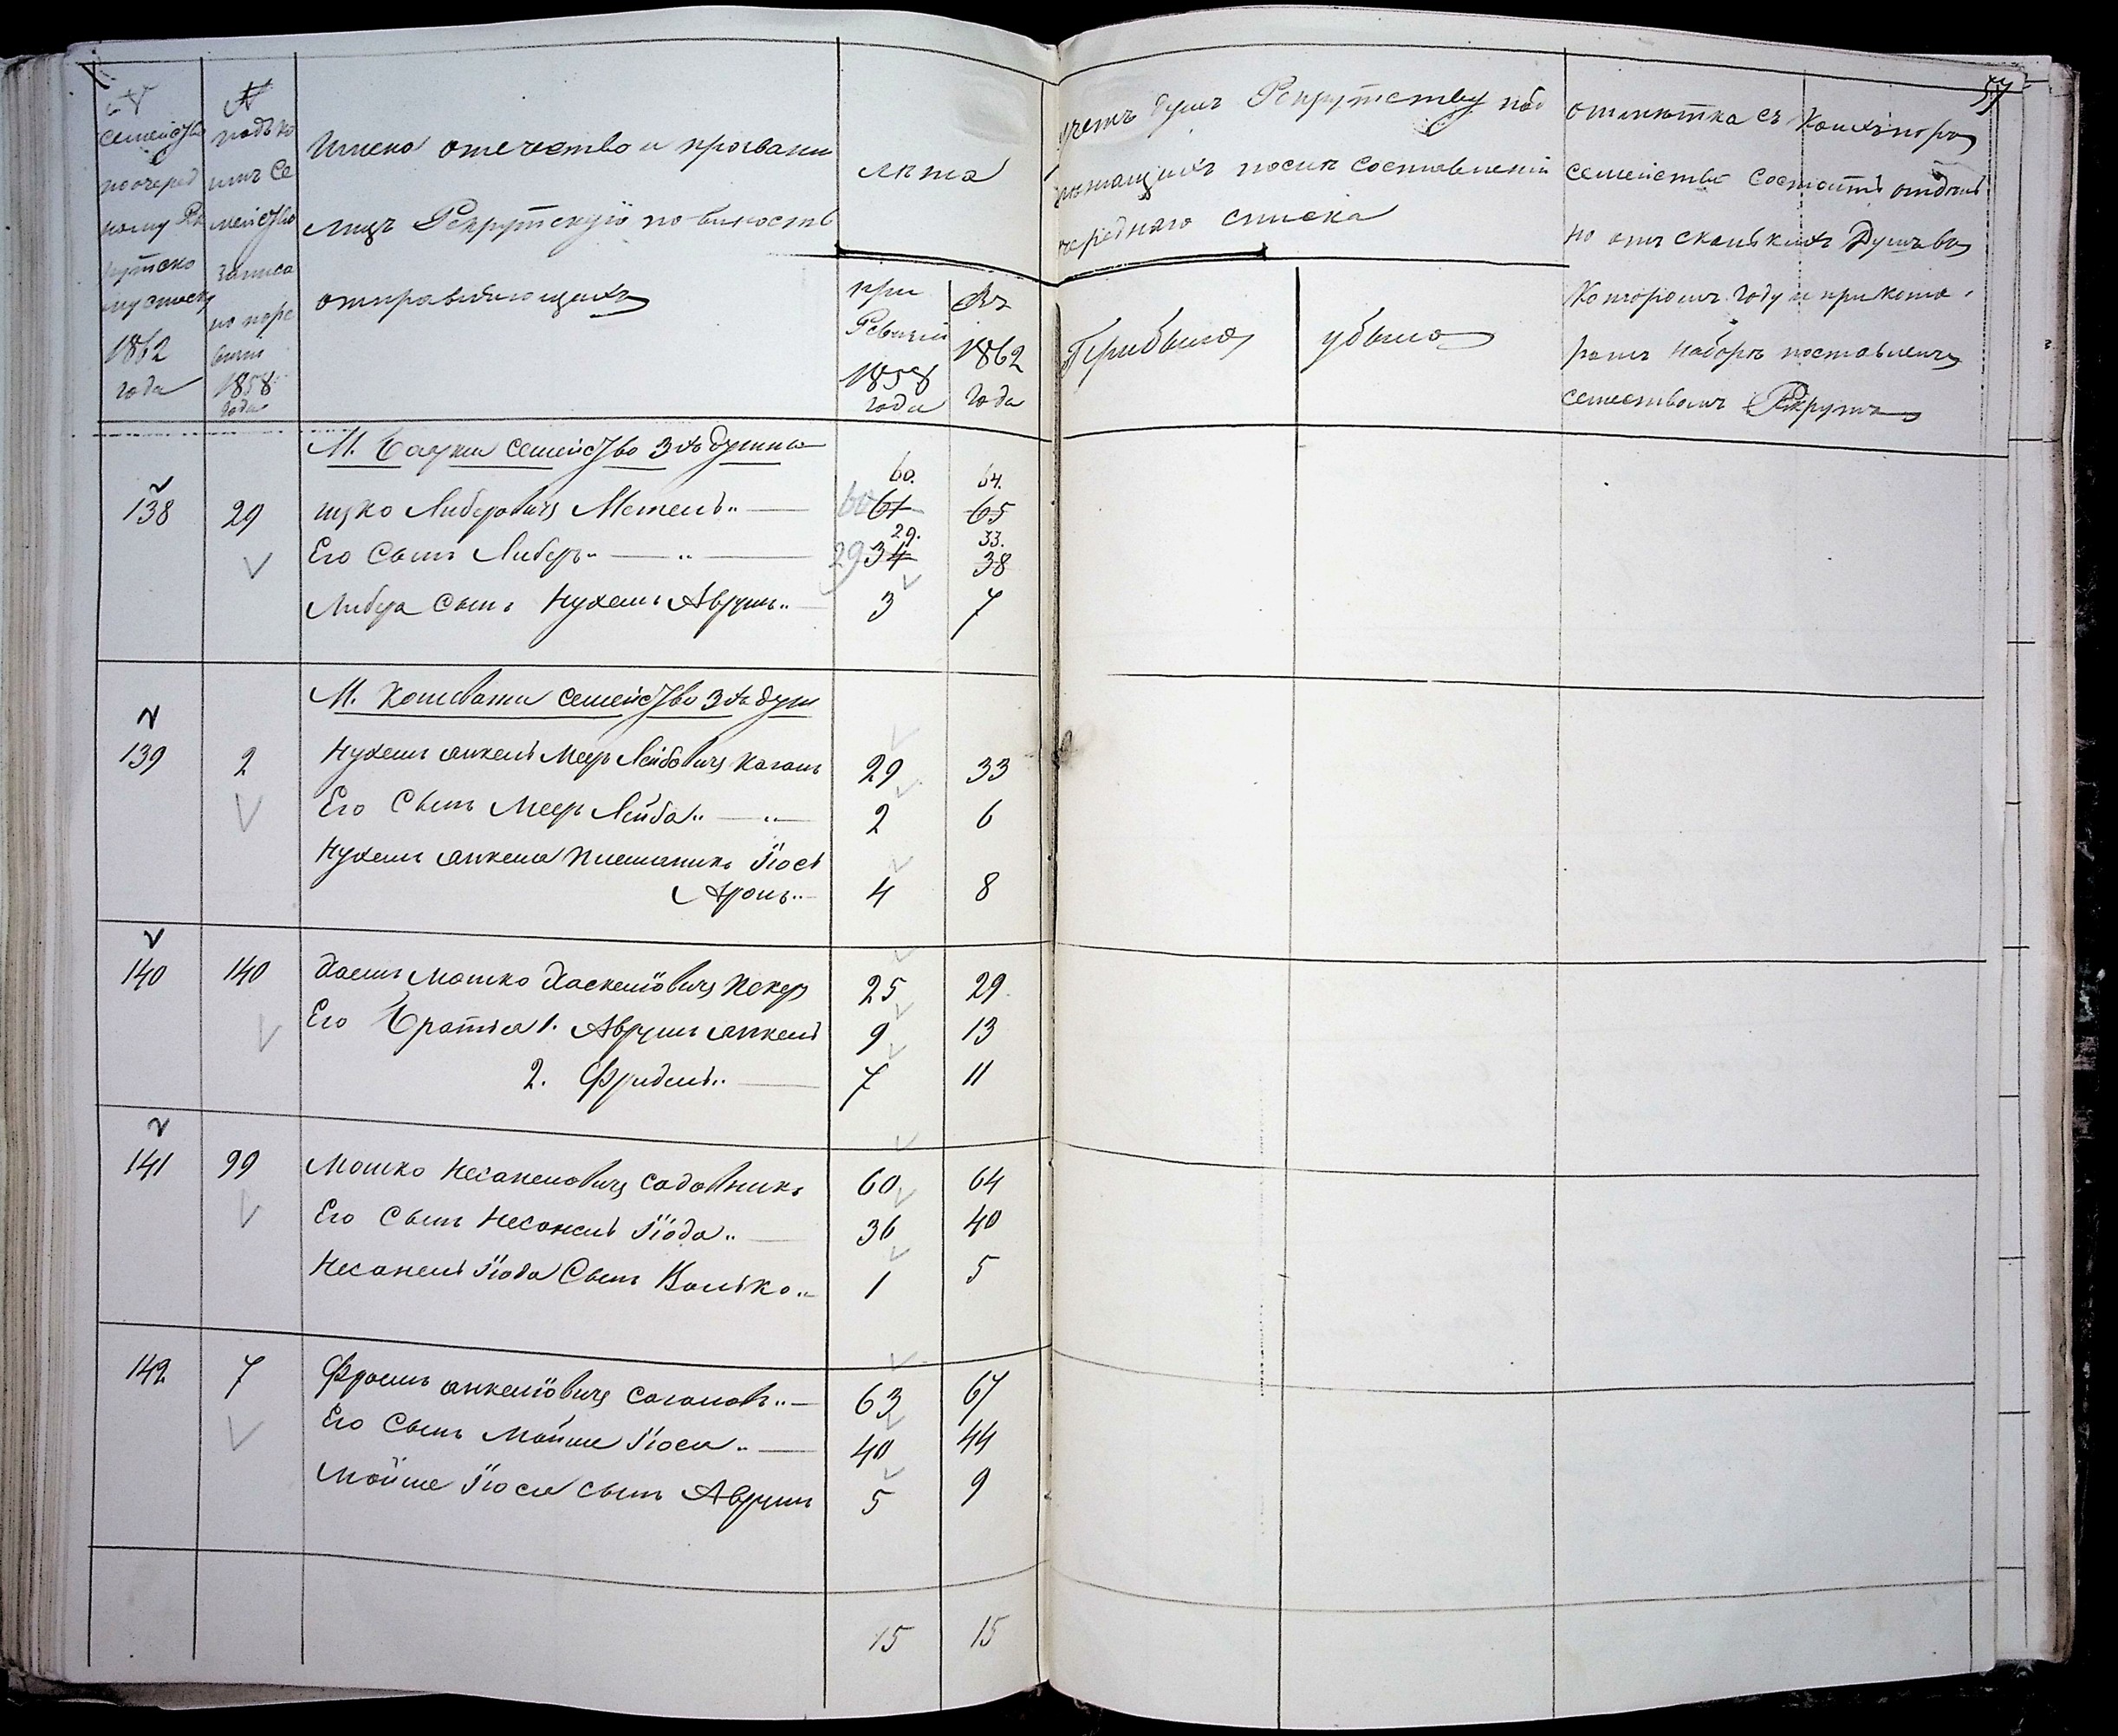 57
№
семейства
по очеред
ному Рек
рутско
му списку
1862
года
№
подъ ко
имъ се
мейство
записа
но по ре
визіи
1858
года
Имена отечество и прозвани
лицъ Рекрутскую повиность
отправляющихъ
лѣта
при
Ревизіи
1858
года
Въ
1862
года
счетъ душъ Рекрутству под
лежащихъ послѣ составленія
череднаго списка
Прибыло
убыло
отмѣтка съ
семейство состоитъ отдѣль
но отъ сколькихъ Душъ въ
которомъ году и при кото
ромъ наборѣ поставленъ
семействомъ Рекрутъ
М. семейство 3хъ душное
138 29 Ицко Либеровичъ Метель 60. 64.
60 61 65
Его сынъ Либеръ 29. 33.
29 34 38
Либера сынъ Нухемъ Аврумъ 3 7
М. Кошеваты семейство 3хъ душ
139 2 Нухемъ Анкель Меер Лейбовичъ Каганъ 29 33
Его сынъ Меер Лейба 2 6
Нухемъ Анкеля племаникъ Йось
Аронъ 4 8
140 140 Хаимъ Мошко Хаскелiовичъ Пекер 25 29
Его Братья 1. Аврумъ Анкель 9 13
2. Фридель 7 11
141 99 Мошко Несанелювичъ Садовникъ 60 64
Его сынъ Несанель Йода 36 40
Несанель Йода сынъ Волько 1 5
142 7 Фроимъ Анкелiовичъ Сагаловъ 63 67
Его сынъ Мойше Йоси 40 44
Мойше Йоси сынъ Аврумъ 5 9
15 15